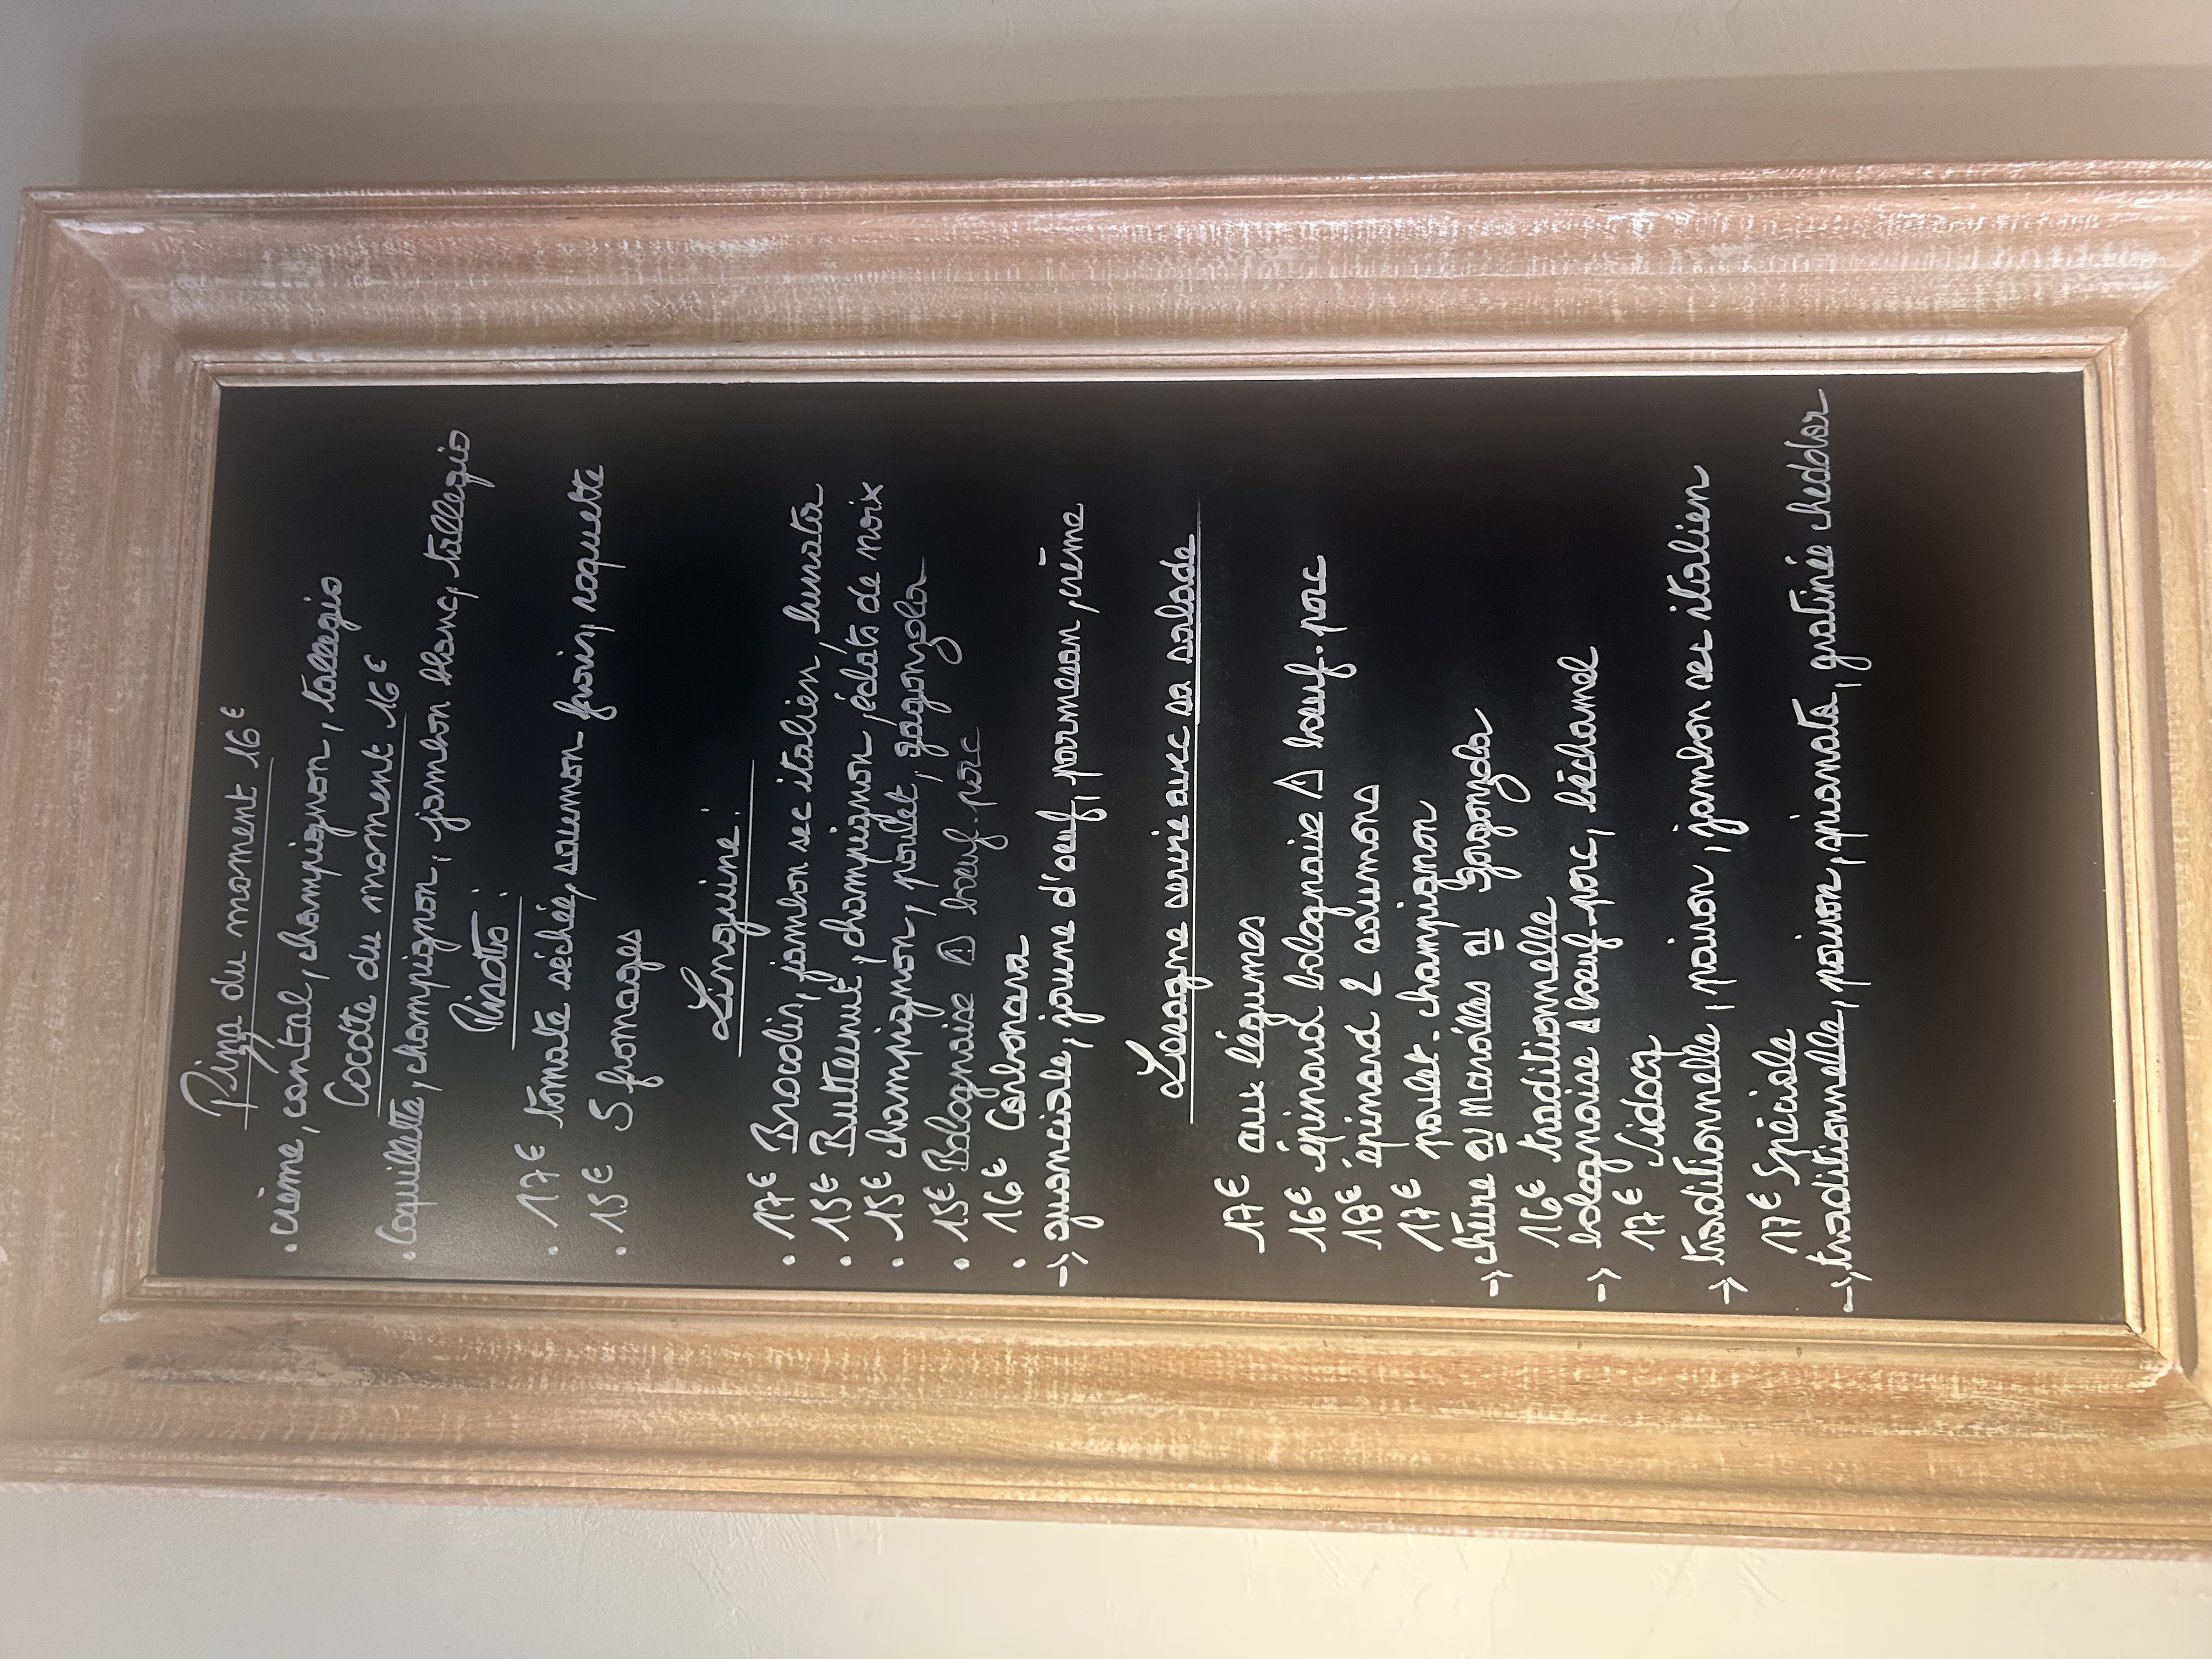 Pizza du moment 16€
• crème, cantal, champignon, tallegio
Cocotte du moment 16€
• Coquillette, champignon, jambon blanc, tallegio
Risotto :
• 17€ tomate séchée, saumon froid, roquette
• 15€ 5 fromages
Linguine :
• 17€ Brocolis, jambon sec italien, burrata
• 15€ Butternut, champignon, éclats de noix
• 15€ champignon, poulet, gorgonzola
• 15€ Bolognaise ⚠ boeuf-porc
• 16€ Carbonara
→ guanciale, jaune d'oeuf, parmesan, crème
Lasagne servie avec sa salade
17€ aux légumes
16€ épinard bolognaise ⚠ boeuf-porc
18€ épinard 2 saumons
17€ poulet-champignon
→ chèvre ou Maroilles ou Gorgonzola
16€ traditionnelle
→ bolognaise ⚠ boeuf-porc, béchamel
17€ Vidocq
→ traditionnelle, poivron, jambon sec italien
17€ Spéciale
→ traditionnelle, poivron, spianata, gratinée cheddar